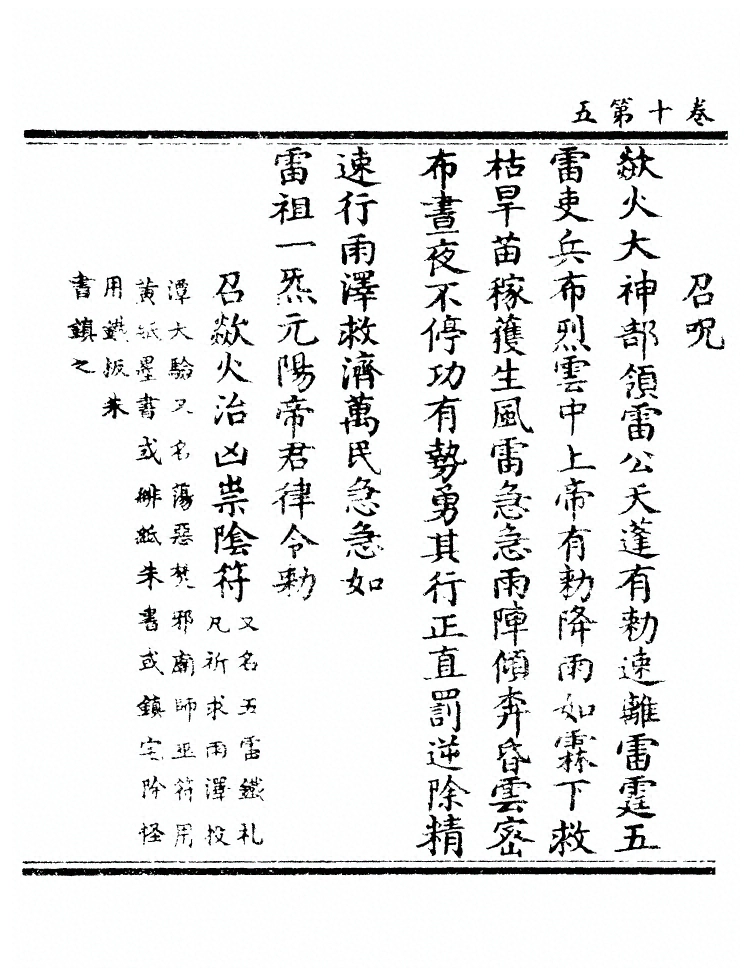 卷十第五
召呪
歘火大神部領雷公天蓬有勑速離雷霆五
雷吏兵布烈雲中上帝有勑降雨如霖下救
枯旱苗稼獲生風雷急急雨陣傾奔昏雲密
布晝夜不停功有勢勇其行正直罰逆除精
速行雨澤救濟萬民急急如
雷祖一炁元陽帝君律令勑
召歘火治凶祟陰符
又名五雷鐵札
凡祈求雨澤投
潭大驗又名蕩惡焚邪廟師巫符用
黄紙墨書或緋紙朱書或鎮宅除怪
用鐵板朱
書鎮之